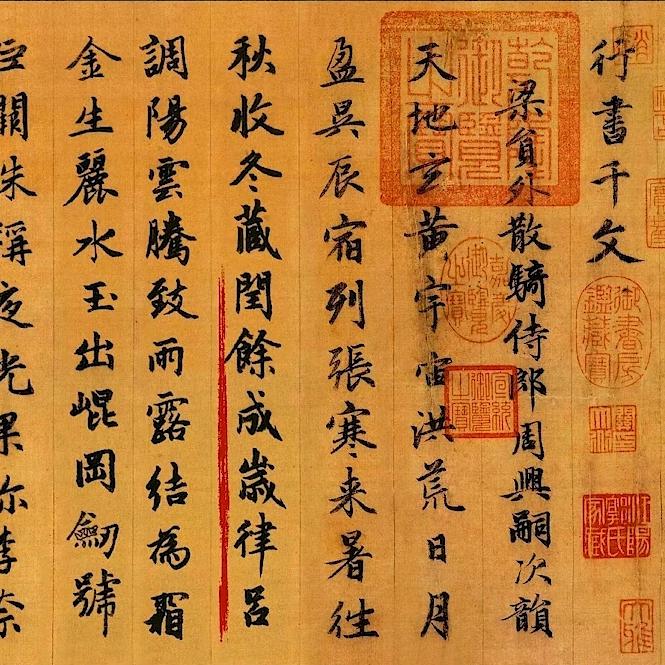 行書千文
梁員外散騎侍郎周興嗣次韻
天地玄黃宇宙洪荒日月
盈昃辰宿列張寒来暑往
秋收冬藏閏餘成歲律呂
調陽雲騰致雨露結為霜
金生麗水玉出崐岡劒號
巨闕朱稱夜光果珎李柰
乾隆御覽之寶
嘉慶御覽之寶
宣統御覽之寶
御書房鑑藏寶